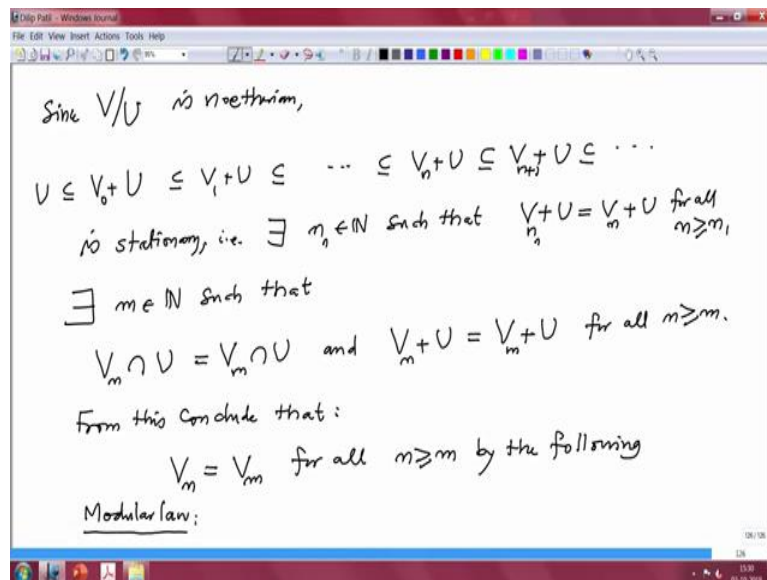 Dilip Patil - Windows Journal
File Edit View Insert Actions Tools Help
Since V/U is noetherian,
U ⊆ V₀+U ⊆ V₁+U ⊆ ... ⊆ Vₙ+U ⊆ Vₙ₊₁+U ⊆ ...
is stationary, i.e. ∃ n₁ ∈ ℕ such that V_n₁+U = Vₙ+U for all n⩾n₁
∃ m ∈ ℕ such that
Vₙ ∩ U = Vₘ ∩ U and Vₙ+U = Vₘ+U for all n⩾m.
From this conclude that:
Vₙ = Vₘ for all n⩾m by the following
Modular law:
126/126
126
15:30